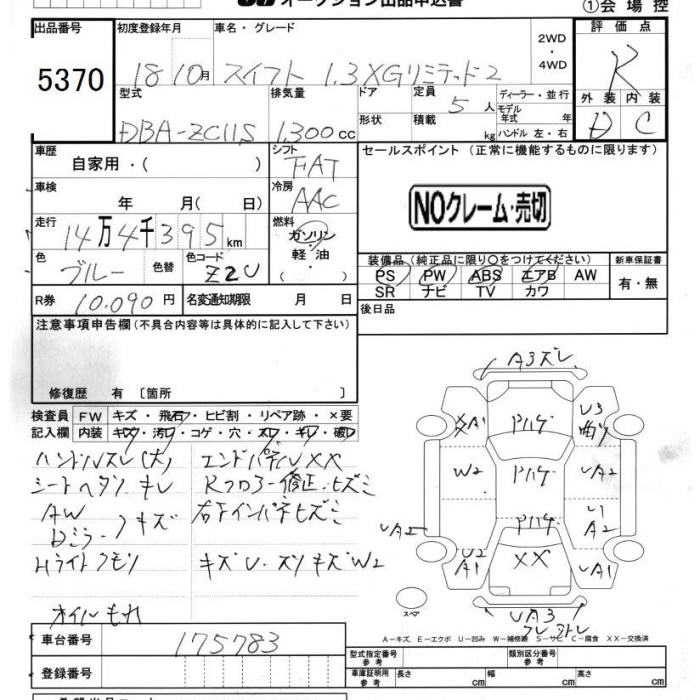 オークション出品申込書
①会場控
出品番号
初度登録年月
車名・グレード
評価点
5370
18 10月
スイフト 1.3XGリミテッド2
2WD
・
4WD
R
型式
排気量
ドア
定員
5人
ディーラー・並行
外装 内装
DBA-ZC11S
1,300cc
形状
積載
kg
モデル年式 年
ハンドル 左・右
D C
車歴
自家用・( )
シフト
FAT
セールスポイント (正常に機能するものに限ります)
車検
年 月( 日)
冷房
AAC
NOクレーム・売切
走行
14万4千395km
燃料
ガソリン
・
軽油
・
装備品(純正品に限り○をつけてください)
新車保証書
色
ブルー
色替
色コード
Z2U
PS PW ABS エアB AW
有・無
SR ナビ TV カワ
R券
10,090円
名変通知期限 月 日
後日品
注意事項申告欄(不具合内容等は具体的に記入して下さい)
修復歴 有 〔箇所 〕
検査員
記入欄
FW
キズ・飛石・ヒビ割・リペア跡・×要
内装
キズ・汚れ・コゲ・穴・スレ・キレ・破レ
ハンドルスレ(大)
エンドパネルXX
シートヘタリ キレ
Rフロアー修正・ヒズミ
AW
Dミラー キズ
右下インパネヒズミ
Hライトクモリ
キズU・スリキズW2
オイルもれ
A3ズレ
XA1
Pハゲ
U3
曲リ
W2
Pハゲ
UA2
UA2
Pハゲ
U1
A2
U2
A1
XX
UA1
UA3
スペア
A−キズ、E−エクボ U−凹み W−補修跡 S−サビ C−腐食 XX−交換済
車台番号
175783
型式指定番号
参考
類別区分番号
参考
登録番号
車庫証明用
参考
長さ cm
幅 cm
高さ cm